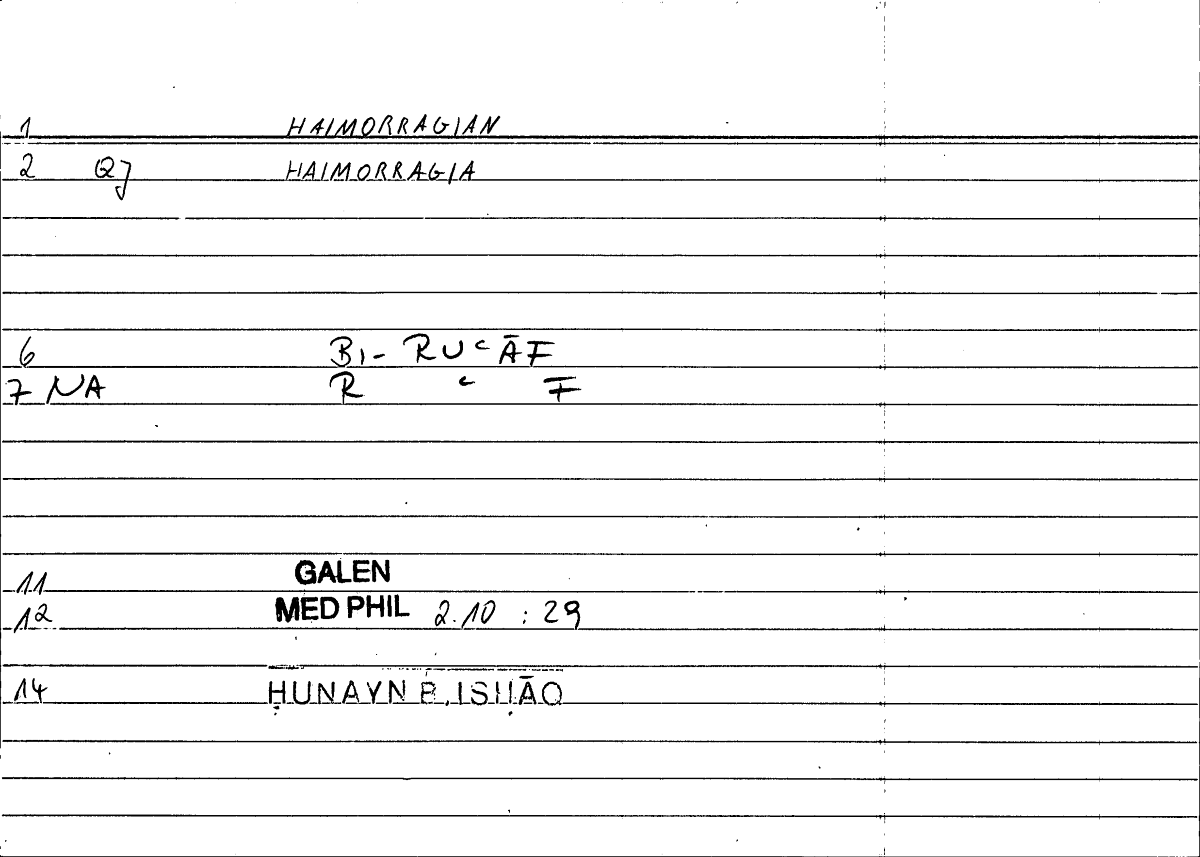 1 HAIMORRAGIAN
2 Qj HAIMORRAGIA
6 BI- RUʿĀF
7 NA R ʿ F
11 GALEN
12 MED PHIL 2.10 : 29
14 ḤUNAYN B. ISḤĀQ